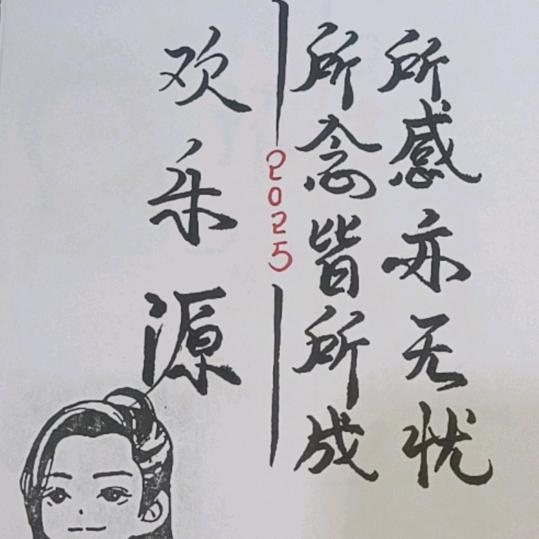 所感亦无忧
所念皆所成
2025
欢乐源